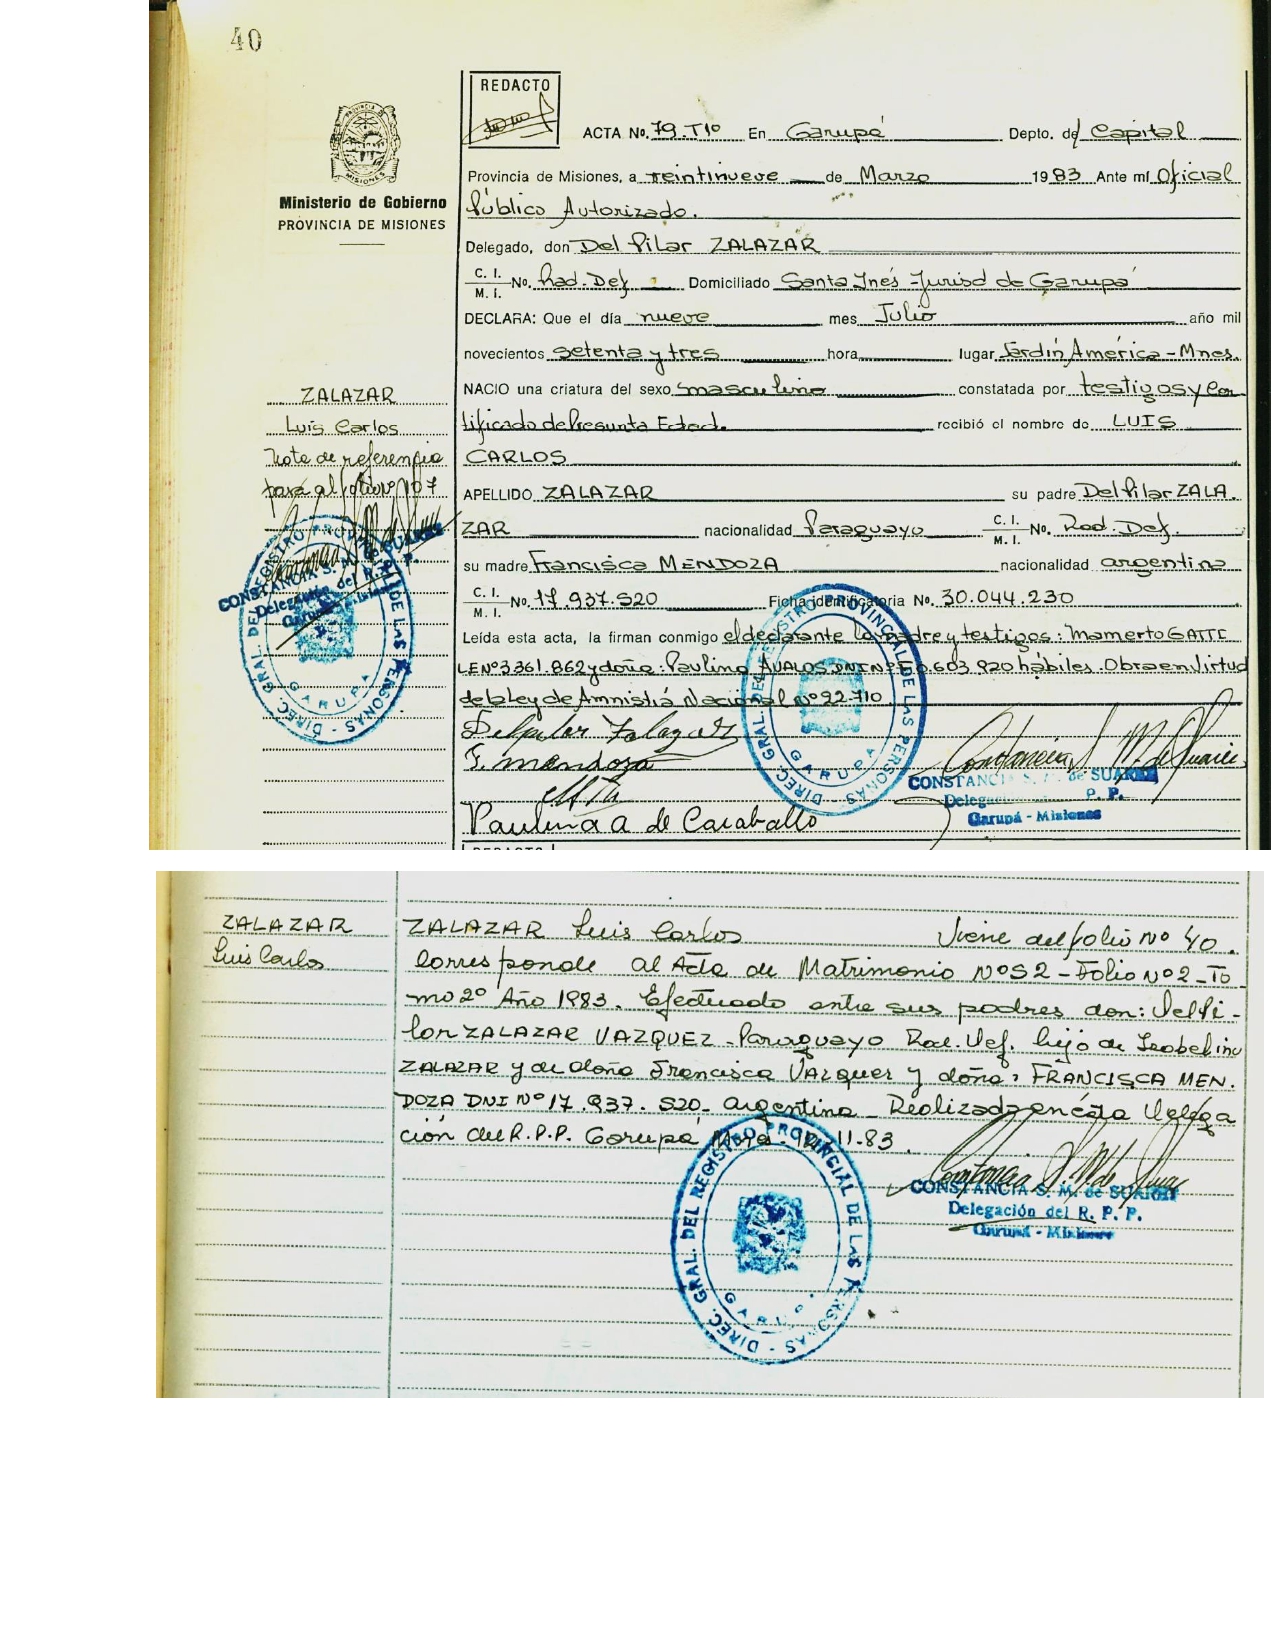 40
REDACTO
ACTA No. 79-Tº1º En Garupá Depto. de Capital
Provincia de Misiones, a veintinueve de Marzo 1983 Ante mí Oficial
Público Autorizado.
Ministerio de Gobierno
PROVINCIA DE MISIONES
Delegado, don Del Pilar ZALAZAR
C. I. M. I. No. Rad. Def. Domiciliado Santa Inés - Jurisd de Garupá
DECLARA: Que el día nueve mes Julio año mil
novecientos setenta y tres hora lugar Jardín América - Mnes.
NACIO una criatura del sexo masculino constatada por testigos y cer
tificado de Presunta Edad. recibió el nombre de LUIS
CARLOS
APELLIDO ZALAZAR su padre Del Pilar ZALA.
ZAR nacionalidad Paraguayo C. I. M. I. No. Rad. Def.
su madre Francisca MENDOZA nacionalidad argentina
C. I. M. I. No. 17.937.520 Ficha identificatoria No. 30.044.230
Leída esta acta, la firman conmigo el declarante la madre y testigos: Mamerto GATTE
LE Nº 3361.862 y doña: Paulina AVALOS DNI Nº 603.920 hábiles. Obra en virtud
de la Ley de Amnistía Nacional Nº 22.710
Delpilar Zalazar
F. mendoza
Paulina a de Caraballo
ZALAZAR
Luis Carlos
Nota de referencia
pasa al folio nº 107
CONSTANCIA S. M. de SUAREZ
Delegación del R. P. P.
Garupá - Misiones
DIREC. GRAL. DEL REGISTRO PROVINCIAL DE LAS PERSONAS - GARUPA
DIREC. GRAL. DEL REGISTRO PROVINCIAL DE LAS PERSONAS - GARUPA
Constancia S M de Suarez
CONSTANCIA S. M. de SUAREZ
Delegación P. P.
Garupá - Misiones
REDACTO
ZALAZAR
Luis Carlos
ZALAZAR Luis Carlos Viene del folio Nº 40.
Corresponde al Acta de Matrimonio Nº 52 - Folio Nº 2 - To
mo 2º Año 1983. Efectuado entre sus padres don: Del Pi -
lar ZALAZAR VAZQUEZ - Paraguayo Rad. Def. hijo de Isabelino
ZALAZAR y de doña Francisca VAZQUEZ y doña: FRANCISCA MEN.
DOZA DNI Nº 17.937.520 - argentina - Realizada en ésta Delega
ción del R.P.P. Garupá 11-83.
DIREC. GRAL. DEL REGISTRO PROVINCIAL DE LAS PERSONAS - GARUPA
Constancia S. M. de Suarez
CONSTANCIA S. M. de SUAREZ
Delegación del R. P. P.
Garupá - Misiones